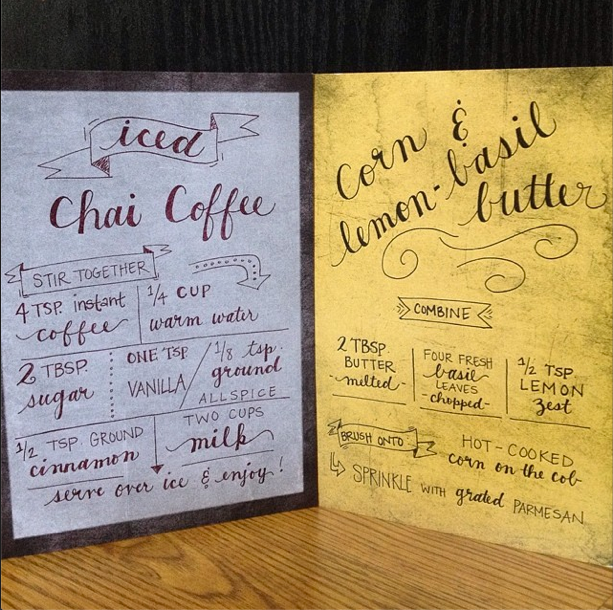 iced
Chai Coffee
STIR TOGETHER
4 TSP. instant
coffee
1/4 CUP
warm water
2 TBSP.
sugar
ONE TSP
VANILLA
1/8 tsp.
ground
ALLSPICE
1/2 TSP. GROUND
cinnamon
TWO CUPS
milk
serve over ice & enjoy!
Corn &
lemon-basil
butter
COMBINE
2 TBSP.
BUTTER
-melted-
FOUR FRESH
basil
LEAVES
-chopped-
1/2 TSP.
LEMON
zest
BRUSH ONTO
HOT-COOKED
corn on the cob
SPRINKLE WITH grated PARMESAN